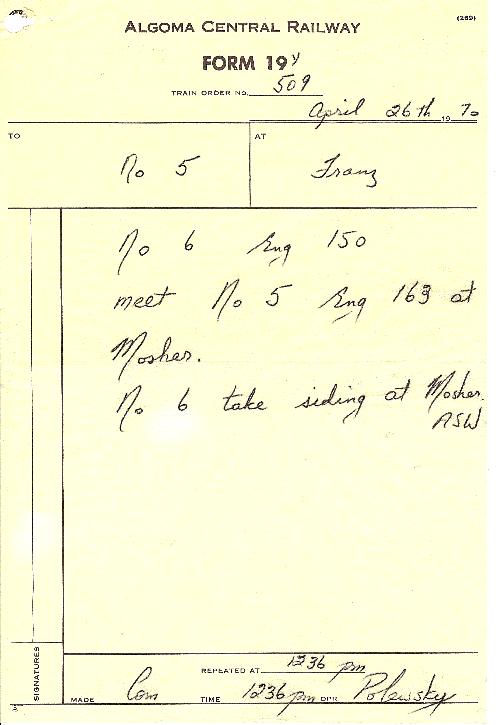 (259)
ALGOMA CENTRAL RAILWAY
FORM 19 Y
TRAIN ORDER NO. 509
April 26th 19 70
TO No 5 AT Franz
No 6 Eng 150
meet No 5 Eng 163 at
Mosher.
No 6 take siding at Mosher.
ASW
SIGNATURES
REPEATED AT 1236 pm
MADE Com TIME 1236 pm DPR Polewsky